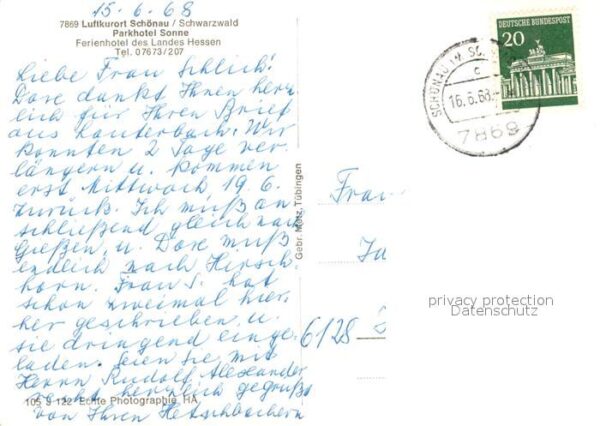 15.6.68
7869 Luftkurort Schönau / Schwarzwald
Parkhotel Sonne
Ferienhotel des Landes Hessen
Tel. 07673/207
Liebe Frau Schlich!
Dore dankt Ihnen herz
lich für Ihren Brief
aus Lauterbach. Wir
konnten 2 Tage ver
längern u. kommen
erst Mittwoch 19.6.
zurück. Ich muß an
schließend gleich nach
Gießen, u. Dore muß
endlich nach Hirsch
horn. Frau J. hat
schon zweimal hier
her geschrieben u.
sie dringend einge
laden. Seien Sie mit
Herrn Rudolf Alexander
recht herzlich gegrüßt
von Ihren Hetschbachern
105 9 122 Echte Photographie HA
Gebr. Metz, Tübingen
DEUTSCHE BUNDESPOST
20
SCHÖNAU IM SC
c
16.6.68
7869
Frau
6128
privacy protection
Datenschutz